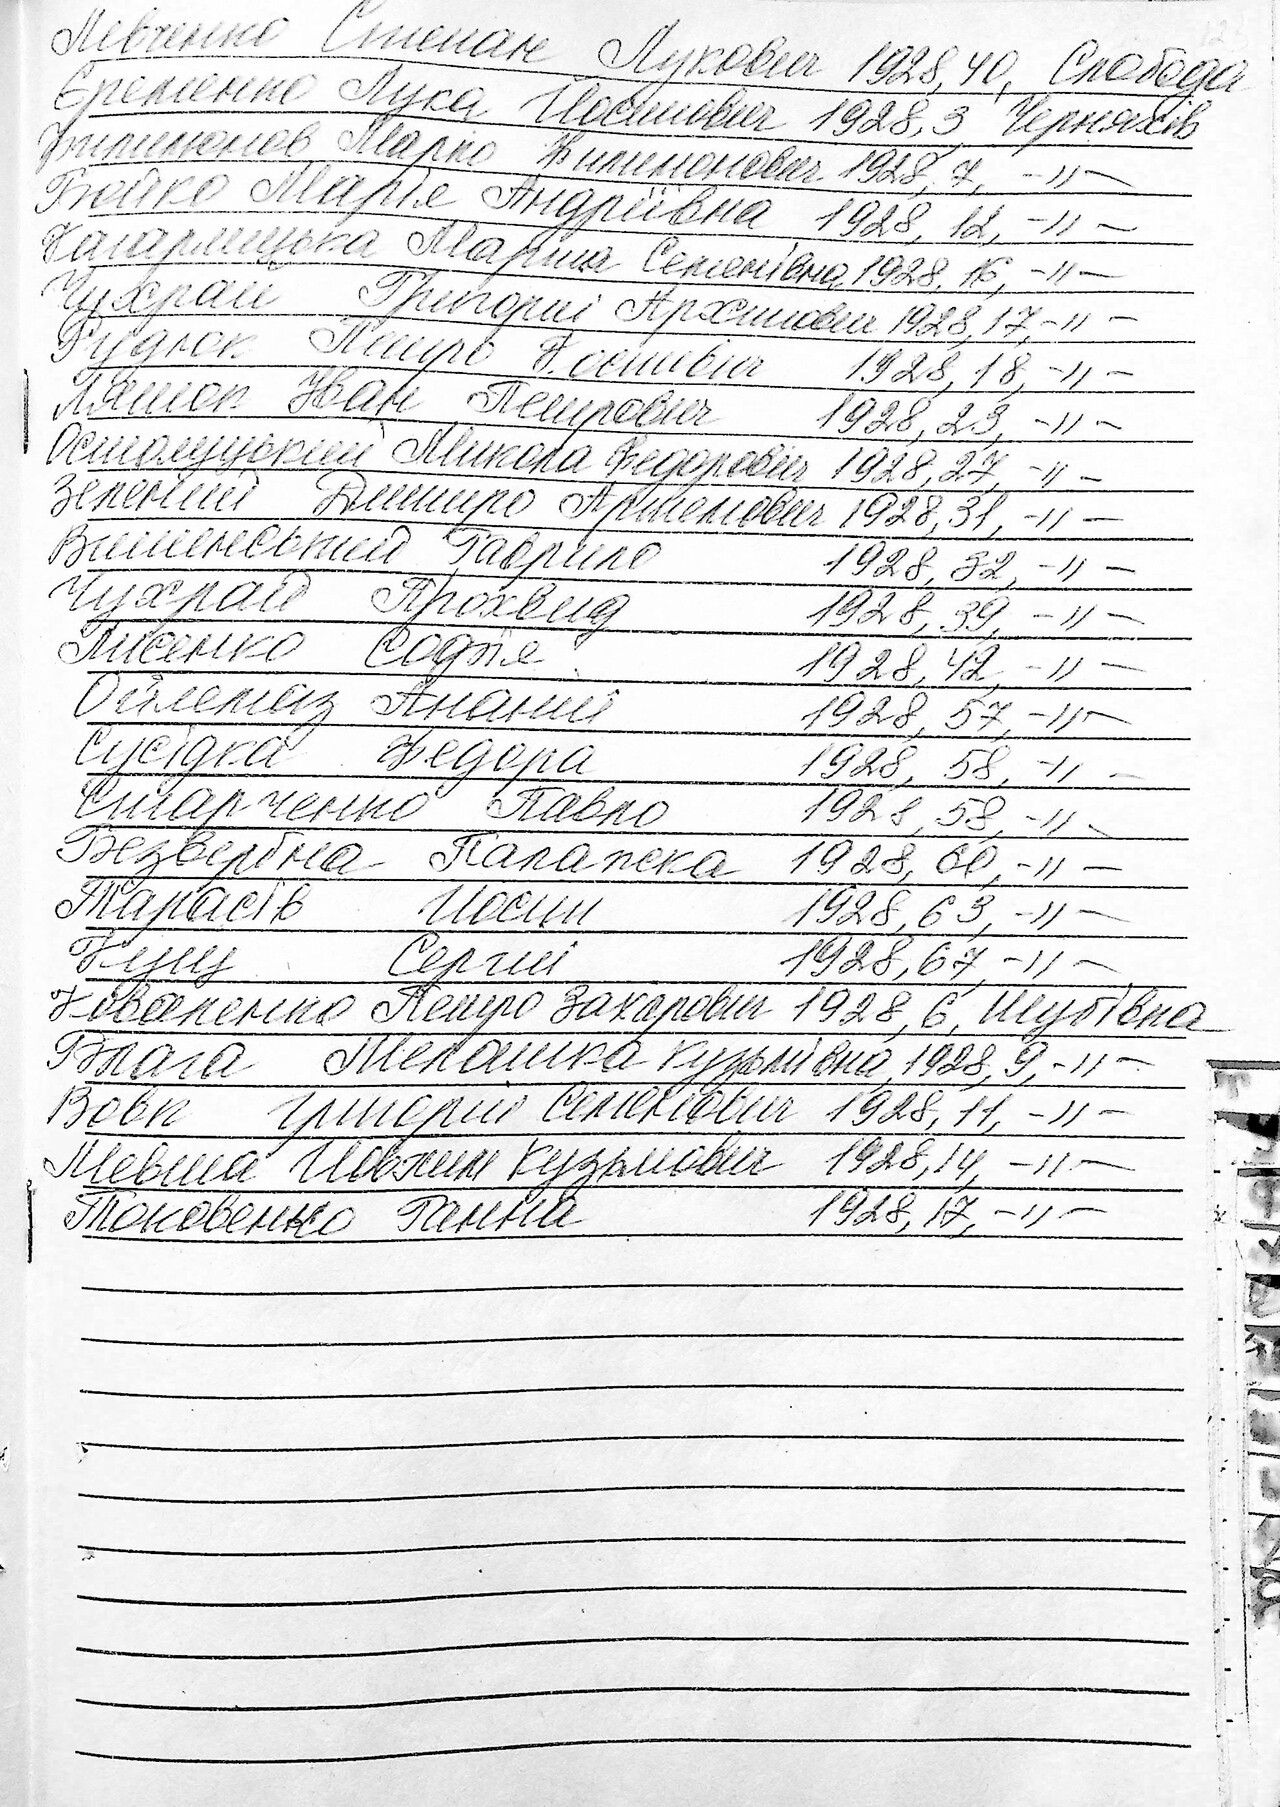 Левченко Степан Лукович 1928, 40, Слобода
Єременко Лука Йосипович 1928, 3 Черняхів
Филимонов Марко Филимонович 1928, 7, -"-
Бойко Марія Андріївна 1928, 12, -"-
Кагарлицька Марія Семенівна 1928, 16, -"-
Чухрай Григорій Архипович 1928, 17, -"-
Рудюк Петро 1928, 18, -"-
Ляшок Иван Петрович 1928, 23, -"-
Остолуцький Микола Федорович 1928, 27, -"-
Зелений Дмитро Артемович 1928, 31, -"-
Вишенський Гаврило 1928, 32, -"-
Чухрай Прохвид 1928, 39, -"-
Лисенко Софія 1928, 42, -"-
Ананій 1928, 57, -"-
Сусідка Федора 1928, 58, -"-
Старченко Павло 1928, 58, -"-
Безвербна Палажка 1928, 60, -"-
Тарасів Йосип 1928, 63, -"-
Куц Сергій 1928, 67, -"-
Коваленко Петро Захарович 1928, 6, Шубівка
Влага Мелашка Кузьмівна, 1928, 9, -"-
Вовк Григорій Семенович 1928, 11, -"-
Левша Йовхим Кузьмович 1928, 14, -"-
Токовенко Ганна 1928, 17, -"-